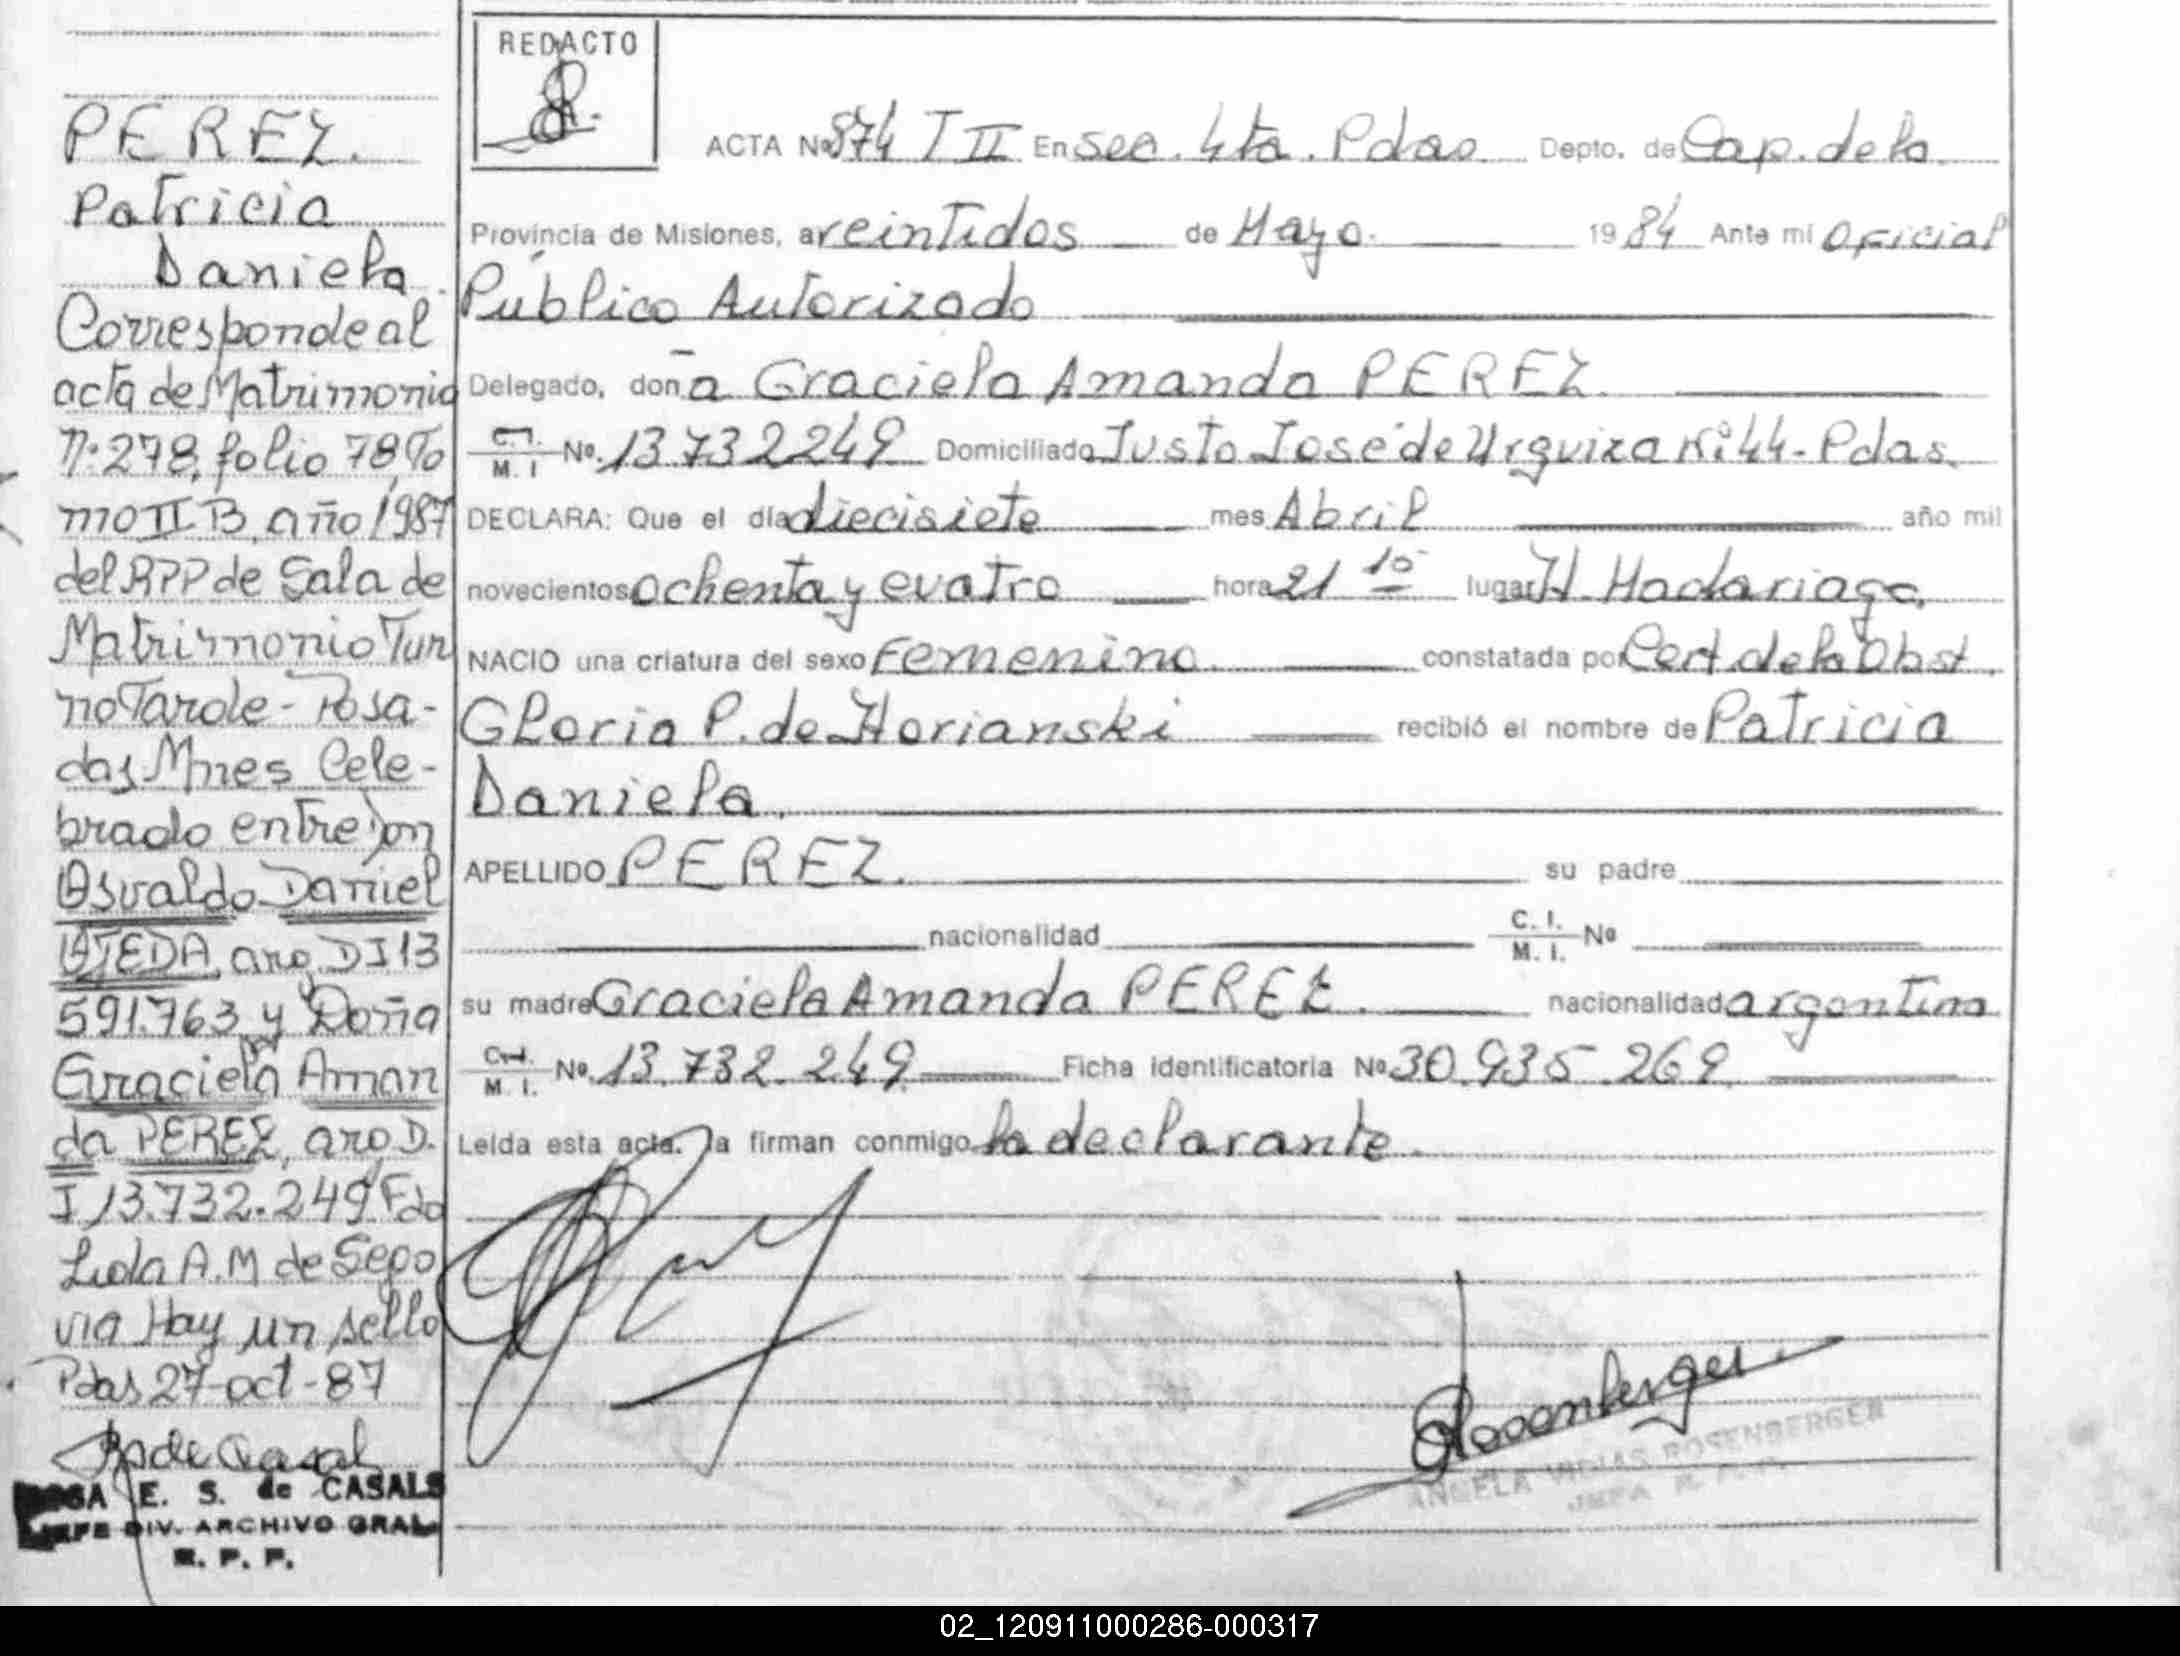 PEREZ.
Patricia
Daniela.
Corresponde al
acta de Matrimonio
N. 278, folio 78, To
mo II B, año 1987
del RPP de Sala de
Matrimonio Tur
no Tarde - Posa-
das Mnes Cele-
brado entre Don
Osvaldo Daniel
OJEDA, arg, DI 13
591.763 y Doña
Graciela Aman
da PEREZ, arg, D.
I 13.732.249 Fdo
Lida A.M de Sego
via Hay un sello
Pdas 27-oct-87
E. S. de CASALS
JEFE DIV. ARCHIVO GRAL.
R. P. P.
REDACTO
ACTA Nº 874 T II En sec. 4ta. Pdas. Depto. de Cap. de la
Provincia de Misiones, a veintidos de Mayo. 1984 Ante mí Oficial
Público Autorizado
Delegado, doña Graciela Amanda PEREZ.
C.I. / M. I Nº. 13.732249 Domiciliada Justo José de Urquiza Nº 44.- Pdas.
DECLARA: Que el día diecisiete mes Abril año mil
novecientos ochenta y cuatro hora 21 10 lugar H. Madariaga,
NACIO una criatura del sexo Femenino. constatada por Cert. de la Obst.
Gloria P. de Horianski recibió el nombre de Patricia
Daniela.
APELLIDO PEREZ. su padre
nacionalidad C. I. / M. I. Nº
su madre Graciela Amanda PEREZ. nacionalidad argentina
C.I. / M. I. Nº. 13.732.249 Ficha identificatoria Nº 30.935.269
Leída esta acta. la firman conmigo la declarante.
Rosenberger.
ANGELA ROSENBERGER
JEFA R. P. P.
02_120911000286-000317